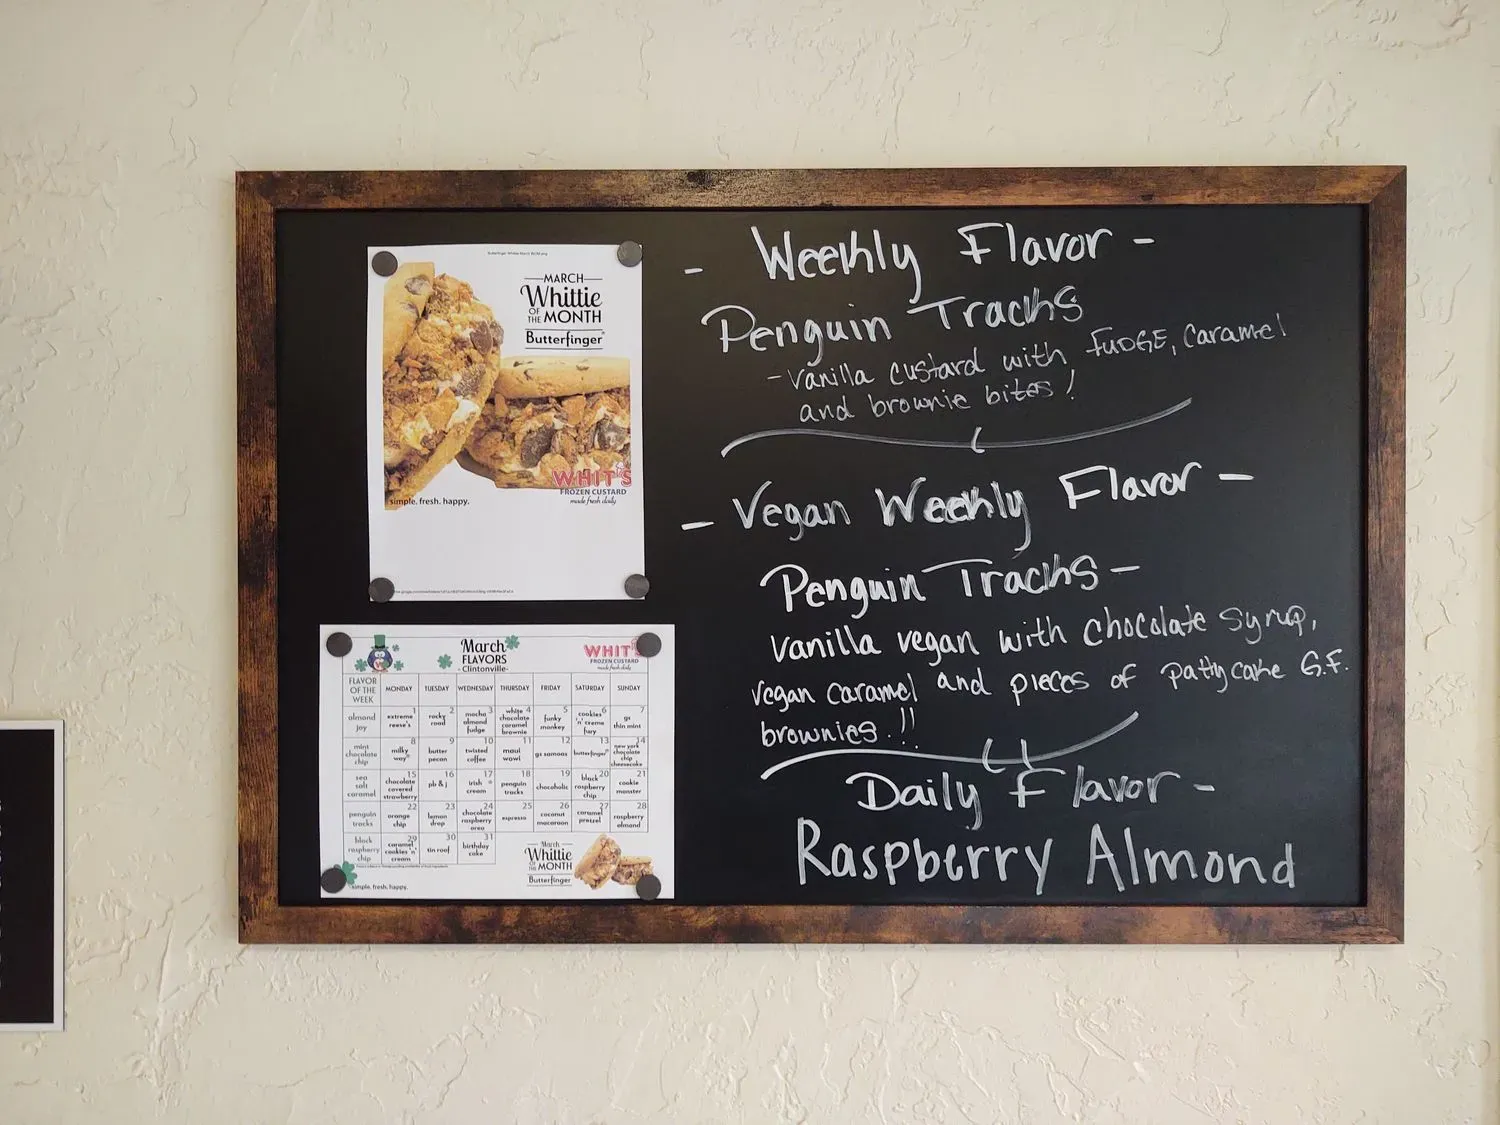 MARCH
Whittie
OF THE MONTH
Butterfinger®
WHIT'S
FROZEN CUSTARD
made fresh daily
simple. fresh. happy.
March
FLAVORS
- Clintonville-
WHIT'S
FROZEN CUSTARD
made fresh daily
FLAVOR OF THE WEEK MONDAY TUESDAY WEDNESDAY THURSDAY FRIDAY SATURDAY SUNDAY
almond joy 1 extreme reese's 2 rocky road 3 mocha almond fudge 4 white chocolate caramel brownie 5 funky monkey 6 cookies 'n' creme fury 7 gs thin mint
mint chocolate chip 8 milky way® 9 butter pecan 10 twisted coffee 11 maui wowi 12 gs samoas 13 butterfinger® 14 new york chocolate chip cheesecake
sea salt caramel 15 chocolate covered strawberry 16 pb & j 17 irish cream 18 penguin tracks 19 chocoholic 20 black raspberry chip 21 cookie monster
penguin tracks 22 orange chip 23 lemon drop 24 chocolate raspberry oreo 25 espresso 26 coconut macaroon 27 caramel pretzel 28 raspberry almond
black raspberry chip 29 caramel cookies 'n' cream 30 tin roof 31 birthday cake
March
Whittie
OF THE MONTH
Butterfinger
simple. fresh. happy.
- Weekly Flavor -
Penguin Tracks
- vanilla custard with FUDGE, caramel
and brownie bites!
- Vegan Weekly Flavor -
Penguin Tracks -
vanilla vegan with chocolate syrup,
vegan caramel and pieces of pattycake G.F.
brownies!!
Daily Flavor -
Raspberry Almond